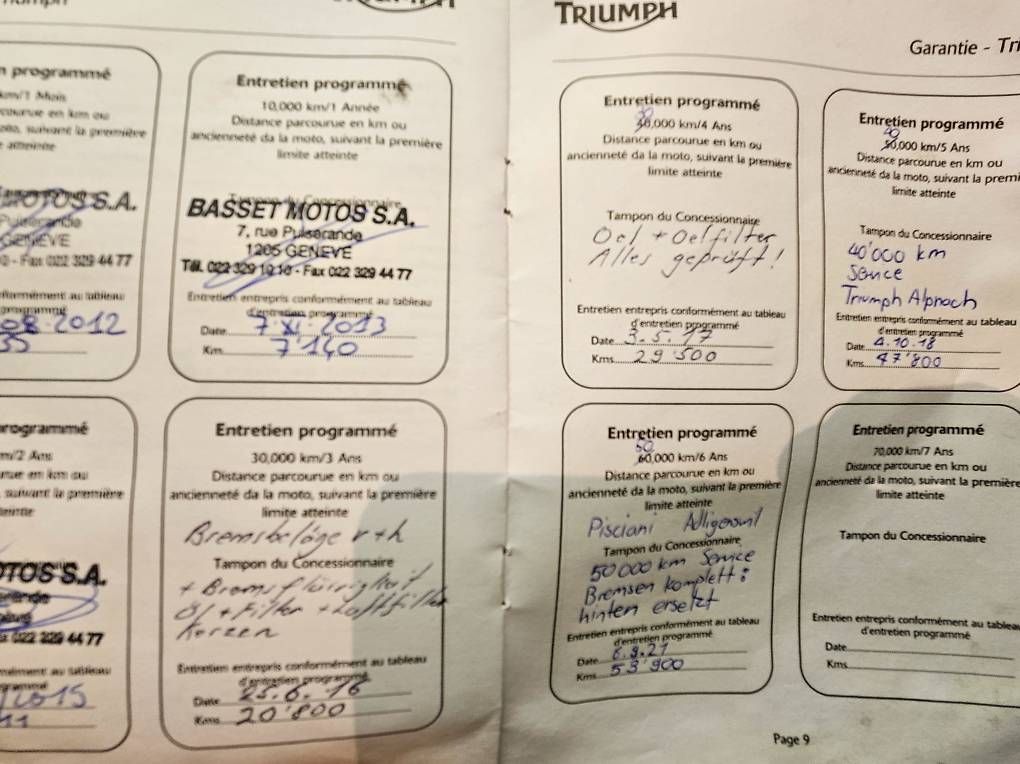 TRIUMPH
Garantie - Tri
programmé
Entretien programmé
10,000 km/1 Année
Distance parcourue en km ou
ancienneté da la moto, suivant la première
limite atteinte
MOTOS S.A.
GENEVE
- Fax 022 329 44 77
08.2012
35
BASSET MOTOS S.A.
7, rue Pulserande
1205 GENEVE
Tél. 022 329 10 10 - Fax 022 329 44 77
Entretien entrepris conformément au tableau
d'entretien programmé
Date 7.XI.2013
Km 7'140
Entretien programmé
40,000 km/4 Ans
Distance parcourue en km ou
ancienneté da la moto, suivant la première
limite atteinte
Tampon du Concessionnaire
Oel + Oelfilter
Alles geprüft!
Entretien entrepris conformément au tableau
d'entretien programmé
Date 3.5.17
Kms 29'500
Entretien programmé
40
50,000 km/5 Ans
Distance parcourue en km ou
ancienneté da la moto, suivant la premi
limite atteinte
Tampon du Concessionnaire
40'000 km
Service
Triumph Alpnach
Entretien entrepris conformément au tableau
d'entretien programmé
Date 4.10.18
Kms 47'800
programmé
/2 Ans
suivant la première
OTOS S.A.
022 329 44 77
2015
11
Entretien programmé
30,000 km/3 Ans
Distance parcourue en km ou
ancienneté da la moto, suivant la première
limite atteinte
Bremsbeläge v+h
Tampon du Concessionnaire
+ Bremsflüssigkeit
Öl + Filter + Luftfilter
Kerzen
Entretien entrepris conformément au tableau
d'entretien programmé
Date 25.6.16
Kms 20'800
Entretien programmé
50
60,000 km/6 Ans
Distance parcourue en km ou
ancienneté da la moto, suivant la première
limite atteinte
Pisciani Adligenswil
Tampon du Concessionnaire
50000 km Service
Bremsen komplett :
hinten ersetzt
Entretien entrepris conformément au tableau
d'entretien programmé
Date 6.9.21
Kms 53'900
Entretien programmé
70,000 km/7 Ans
Distance parcourue en km ou
ancienneté da la moto, suivant la première
limite atteinte
Tampon du Concessionnaire
Entretien entrepris conformément au tableau
d'entretien programmé
Date
Kms
Page 9